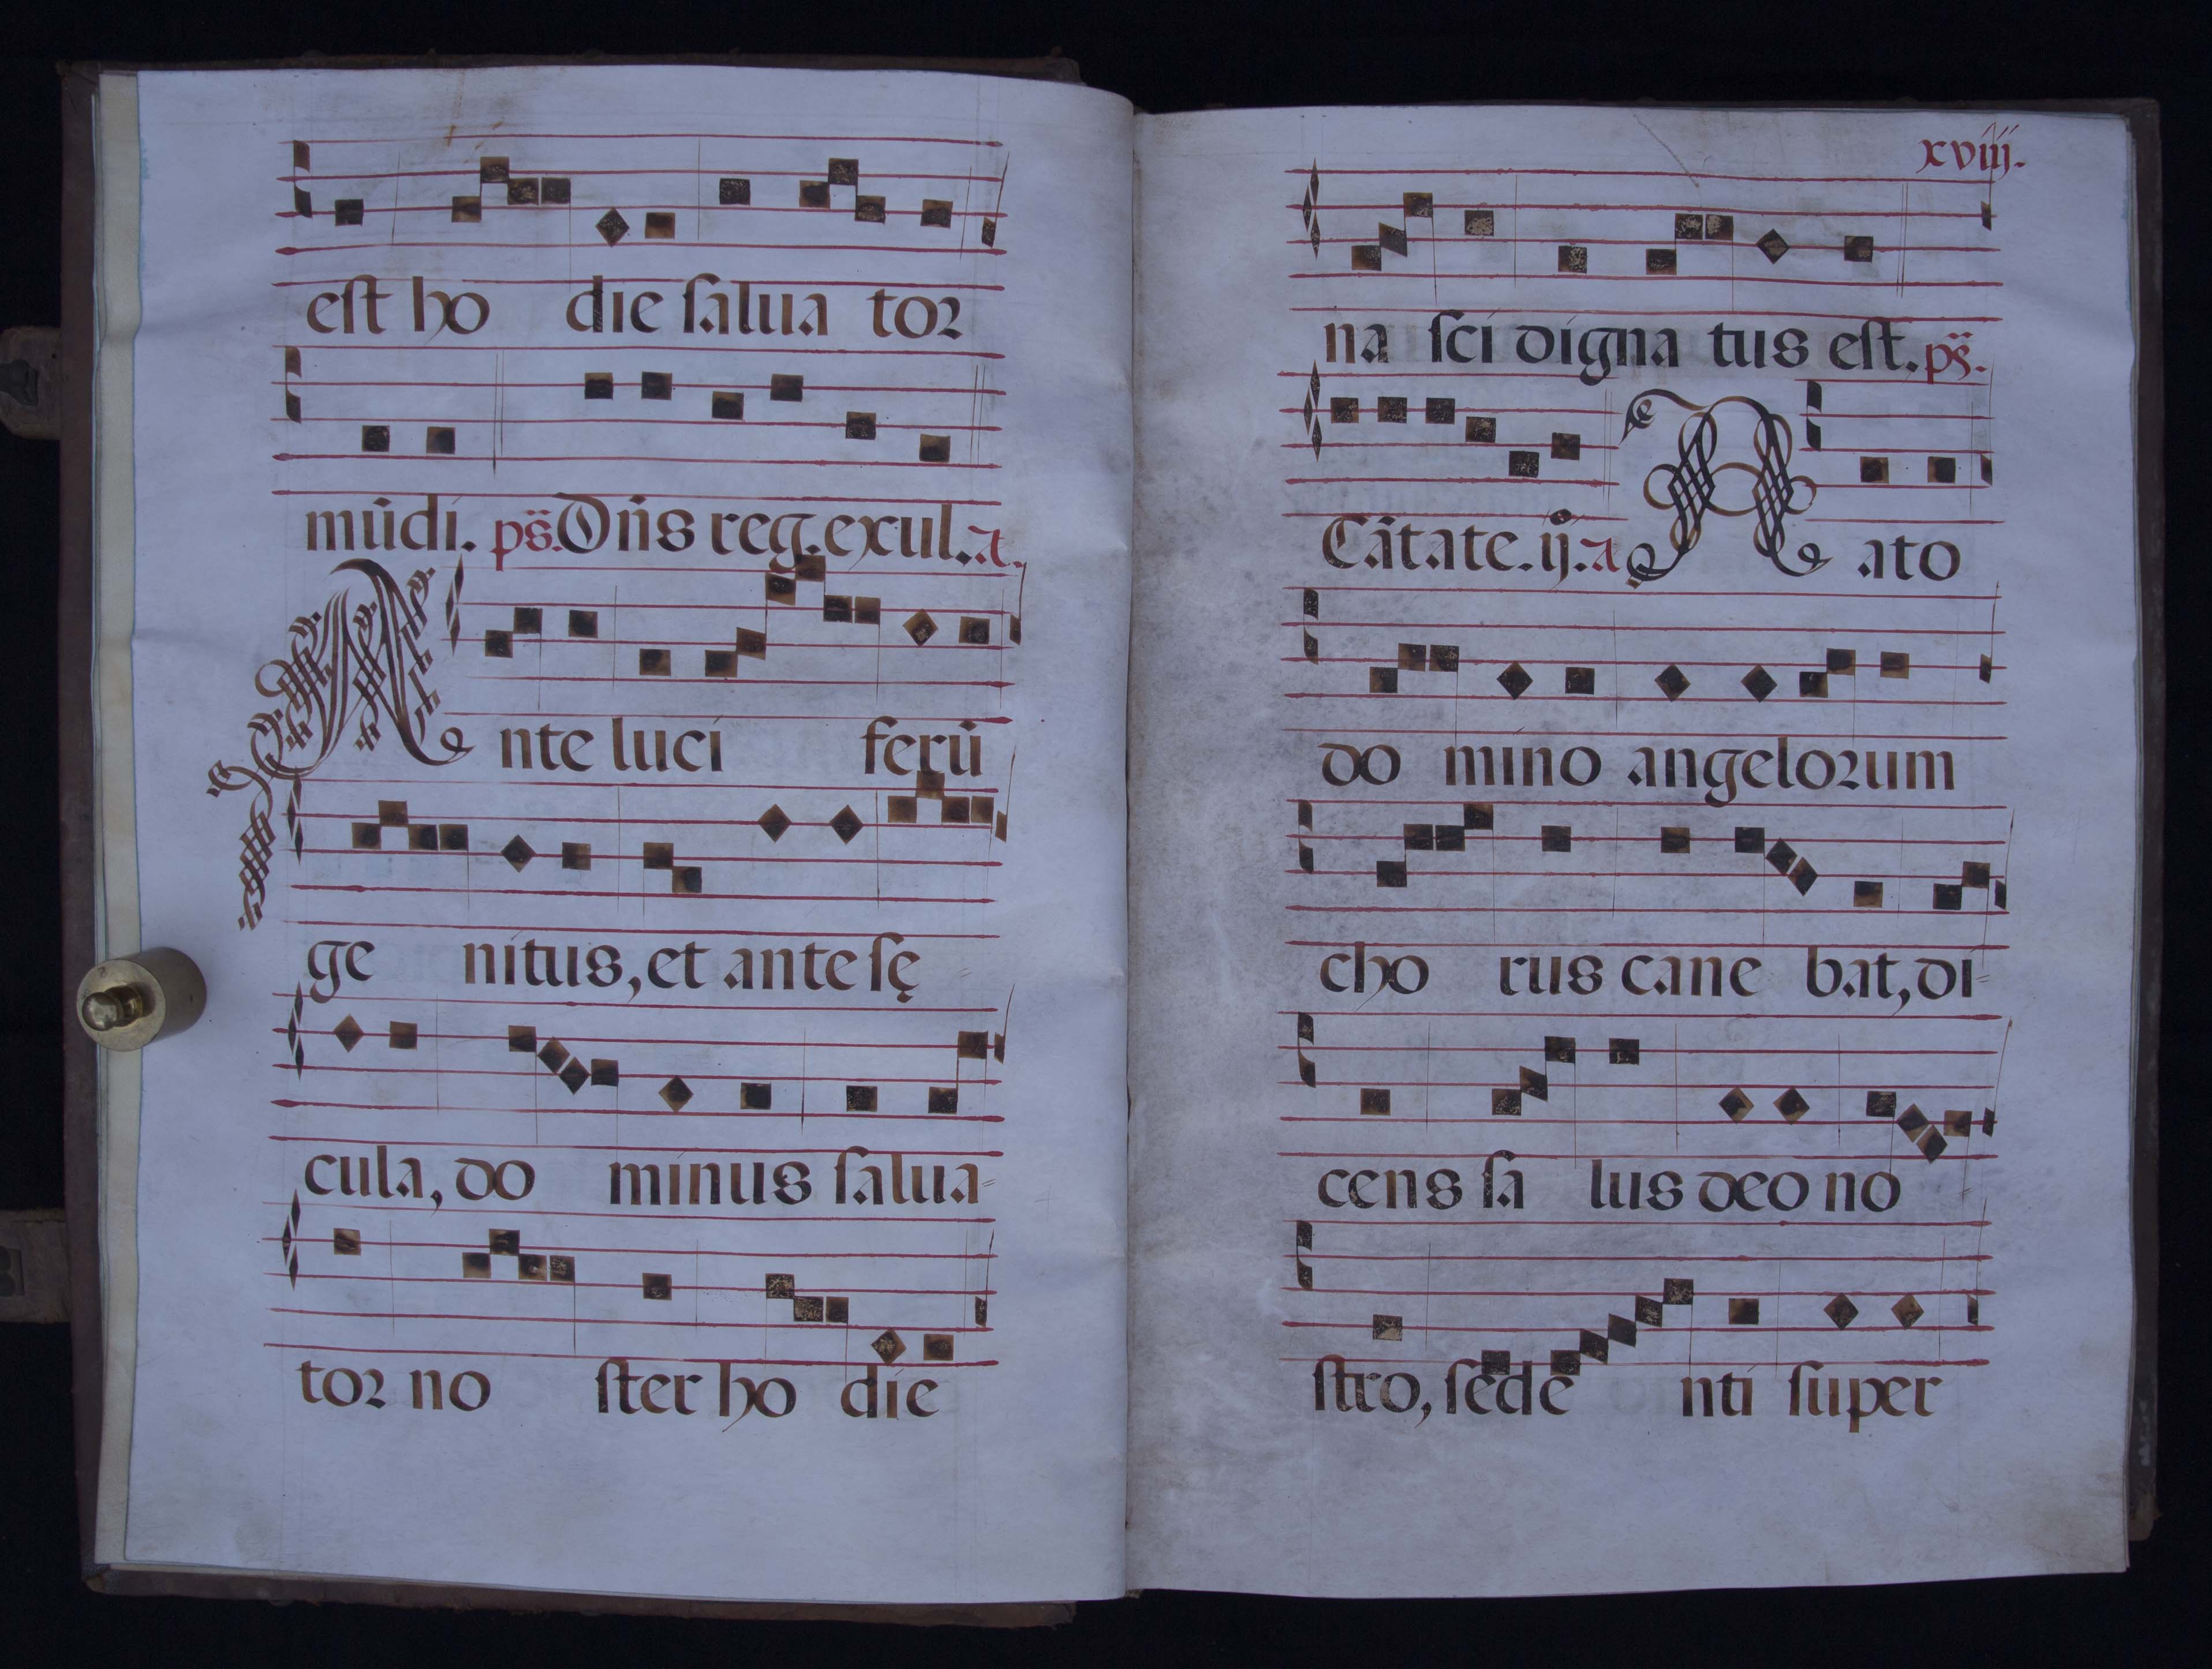 est ho die salua tor
mūdi. ps. Dñs reg. exul. a.
Ante luci ferū
ge nitus, et ante sę
cula, do minus salua-
tor no ster ho die
xviiij.
na sci digna tus est. ps.
Cātate. ij. a Nato
do mino angelorum
cho rus cane bat, di-
cens sa lus deo no
stro, sede nti super